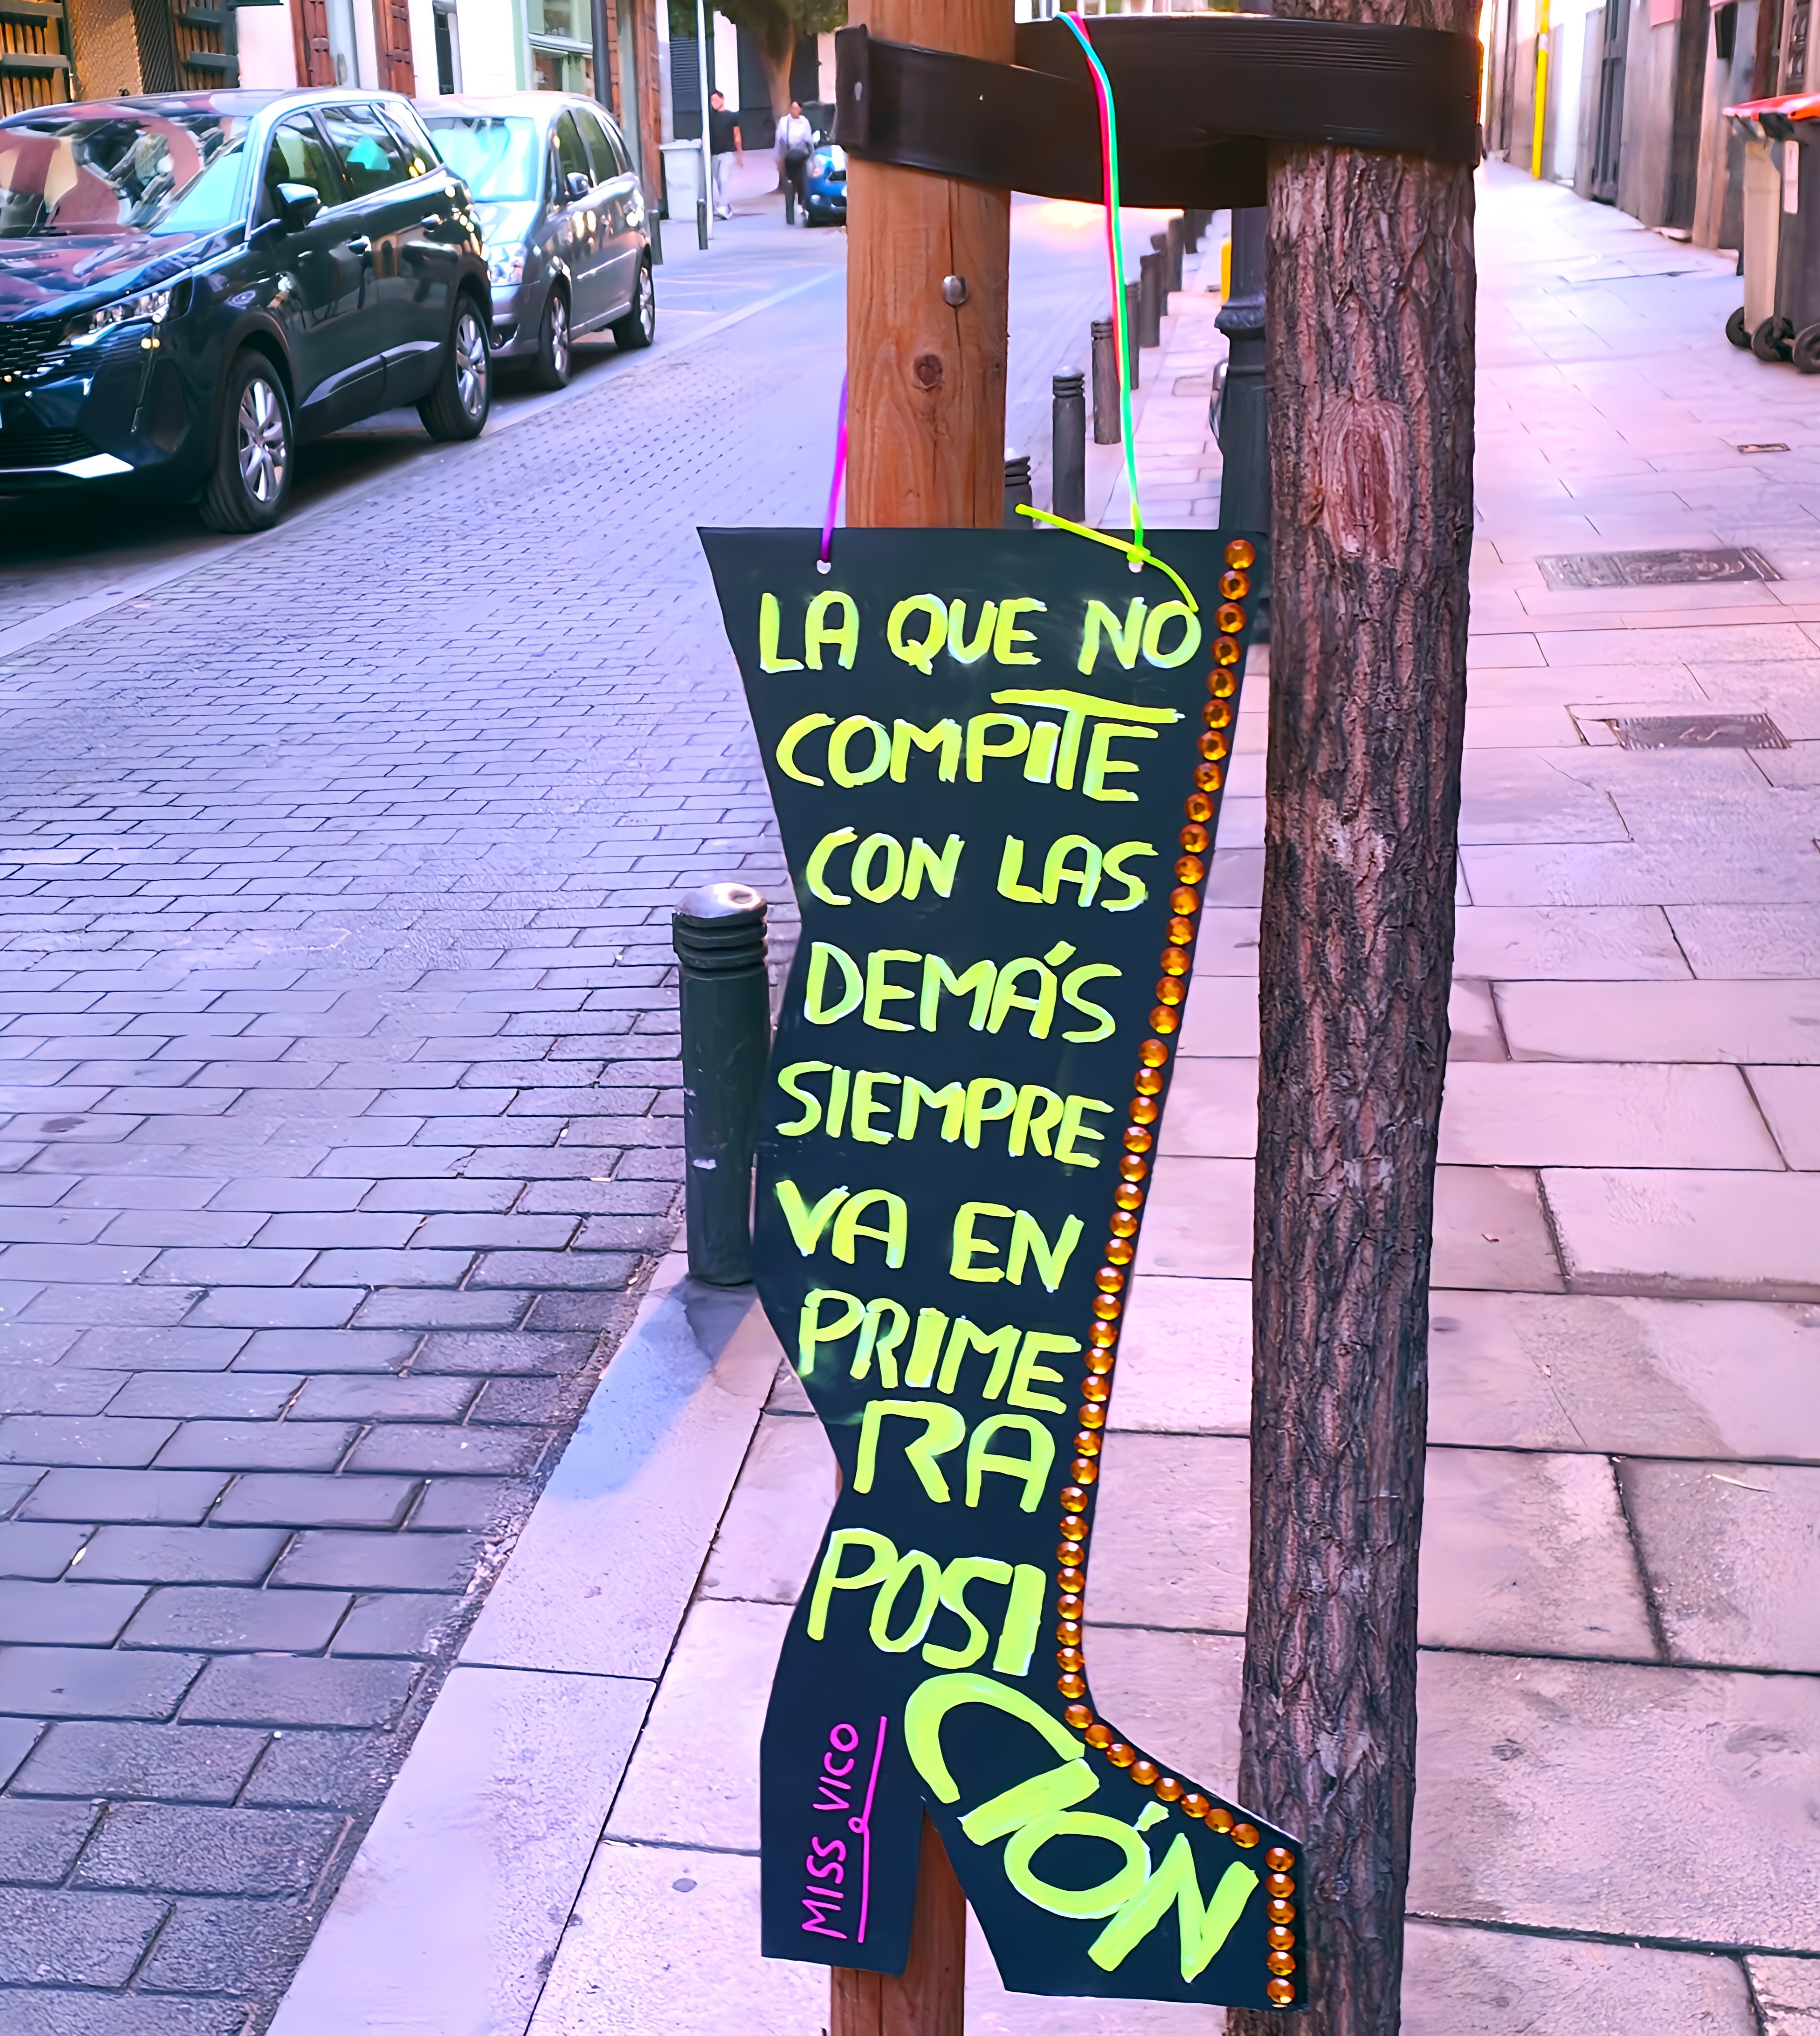 LA QUE NO
COMPITE
CON LAS
DEMÁS
SIEMPRE
VA EN
PRIME
RA
POSI
CIÓN
MISS VICO